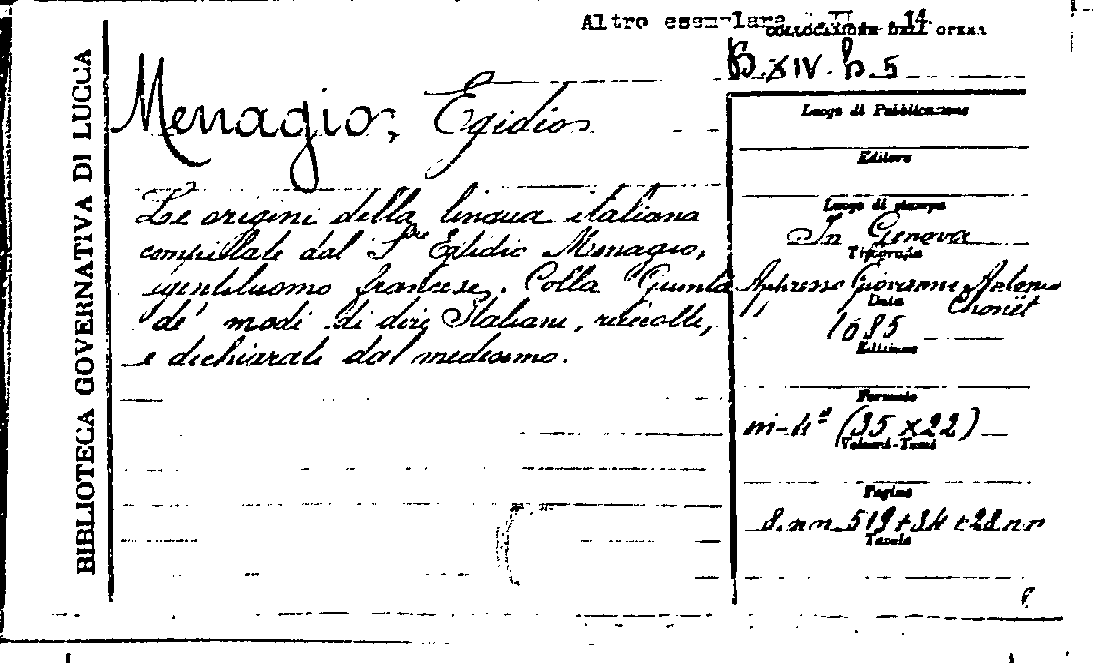 Altro esemplare 14
COLLOCAZIONE DELL'OPERA
B. XIV. b. 5
BIBLIOTECA GOVERNATIVA DI LUCCA
Menagio, Egidio
Le origini della lingua italiana
compillate dal S.re Egidio Menagio,
gentiluomo francese. Colla Giunta
de' modi di dire Italiani, raccolti,
e dichiarati dal medesimo.
Luogo di Pubblicazione
Editore
Luogo di stampa
In Genova
Tipografia
Appresso Giovanni Antonio
Chouët
Data
1685
Edizione
Formato
in-4º (35 x 22)
Volumi-Tomi
Pagine
8.nn 519 + 34 + 28 nn
Tavole